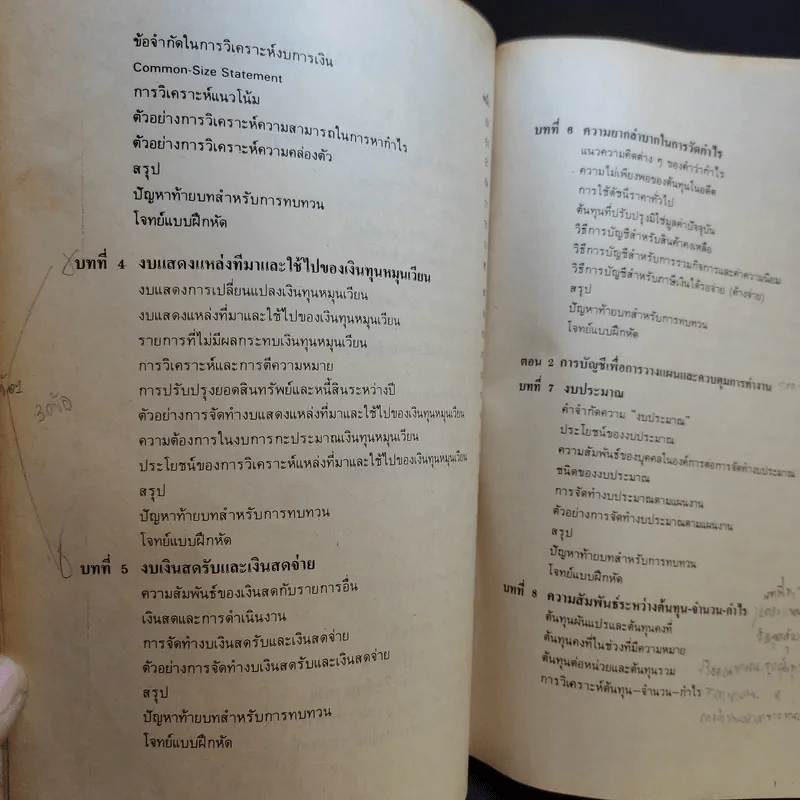 ข้อจำกัดในการวิเคราะห์งบการเงิน
Common-Size Statement
การวิเคราะห์แนวโน้ม
ตัวอย่างการวิเคราะห์ความสามารถในการหากำไร
ตัวอย่างการวิเคราะห์ความคล่องตัว
สรุป
ปัญหาท้ายบทสำหรับการทบทวน
โจทย์แบบฝึกหัด
บทที่ 4 งบแสดงแหล่งที่มาและใช้ไปของเงินทุนหมุนเวียน
งบแสดงการเปลี่ยนแปลงเงินทุนหมุนเวียน
งบแสดงแหล่งที่มาและใช้ไปของเงินทุนหมุนเวียน
รายการที่ไม่มีผลกระทบเงินทุนหมุนเวียน
การวิเคราะห์และการตีความหมาย
การปรับปรุงยอดสินทรัพย์และหนี้สินระหว่างปี
ตัวอย่างการจัดทำงบแสดงแหล่งที่มาและใช้ไปของเงินทุนหมุนเวียน
ความต้องการในงบการกะประมาณเงินทุนหมุนเวียน
ประโยชน์ของการวิเคราะห์แหล่งที่มาและใช้ไปของเงินทุนหมุนเวียน
สรุป
ปัญหาท้ายบทสำหรับการทบทวน
โจทย์แบบฝึกหัด
3 ข้อ
บทที่ 5 งบเงินสดรับและเงินสดจ่าย
ความสัมพันธ์ของเงินสดกับรายการอื่น
เงินสดและการดำเนินงาน
การจัดทำงบเงินสดรับและเงินสดจ่าย
ตัวอย่างการจัดทำงบเงินสดรับและเงินสดจ่าย
สรุป
ปัญหาท้ายบทสำหรับการทบทวน
โจทย์แบบฝึกหัด
บทที่ 6 ความยากลำบากในการวัดกำไร
แนวความคิดต่าง ๆ ของคำว่ากำไร
ความไม่เพียงพอของต้นทุนในอดีต
การใช้ดัชนีราคาทั่วไป
ต้นทุนที่ปรับปรุงมิใช่มูลค่าปัจจุบัน
วิธีการบัญชีสำหรับสินค้าคงเหลือ
วิธีการบัญชีสำหรับการรวมกิจการและค่าความนิยม
วิธีการบัญชีสำหรับภาษีเงินได้รอจ่าย (ค้างจ่าย)
สรุป
ปัญหาท้ายบทสำหรับการทบทวน
โจทย์แบบฝึกหัด
ตอน 2 การบัญชีเพื่อการวางแผนและควบคุมการทำงาน
บทที่ 7 งบประมาณ
คำจำกัดความ "งบประมาณ"
ประโยชน์ของงบประมาณ
ความสัมพันธ์ของบุคคลในองค์การต่อการจัดทำงบประมาณ
ชนิดของงบประมาณ
การจัดทำงบประมาณตามแผนงาน
ตัวอย่างการจัดทำงบประมาณตามแผนงาน
สรุป
ปัญหาท้ายบทสำหรับการทบทวน
โจทย์แบบฝึกหัด
บทที่ 8 ความสัมพันธ์ระหว่างต้นทุน-จำนวน-กำไร
ต้นทุนผันแปรและต้นทุนคงที่
ต้นทุนคงที่ในช่วงที่มีความหมาย
ต้นทุนต่อหน่วยและต้นทุนรวม
การวิเคราะห์ต้นทุน-จำนวน-กำไร